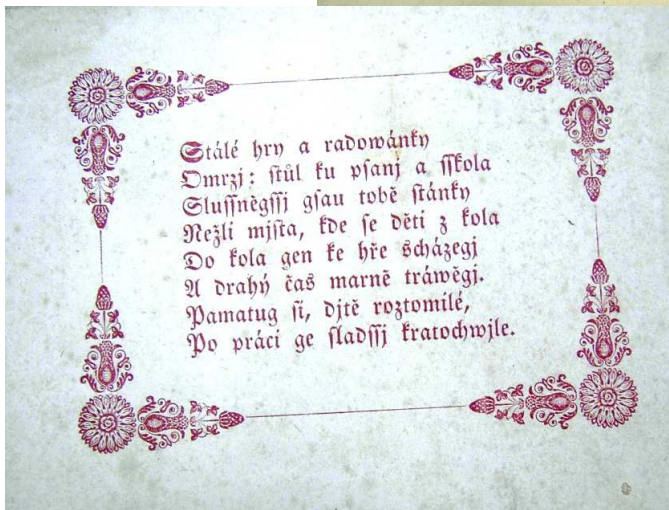 Stálé hry a radowánky
Omrzj: stůl ku psanj a sskola
Slussněgssj gsau tobě stánky
Nežli mjsta, kde se děti z kola
Do kola gen ke hře scházegj
A drahý čas marně tráwěgj.
Pamatug si, djtě roztomilé,
Po práci ge sladssj kratochwjle.